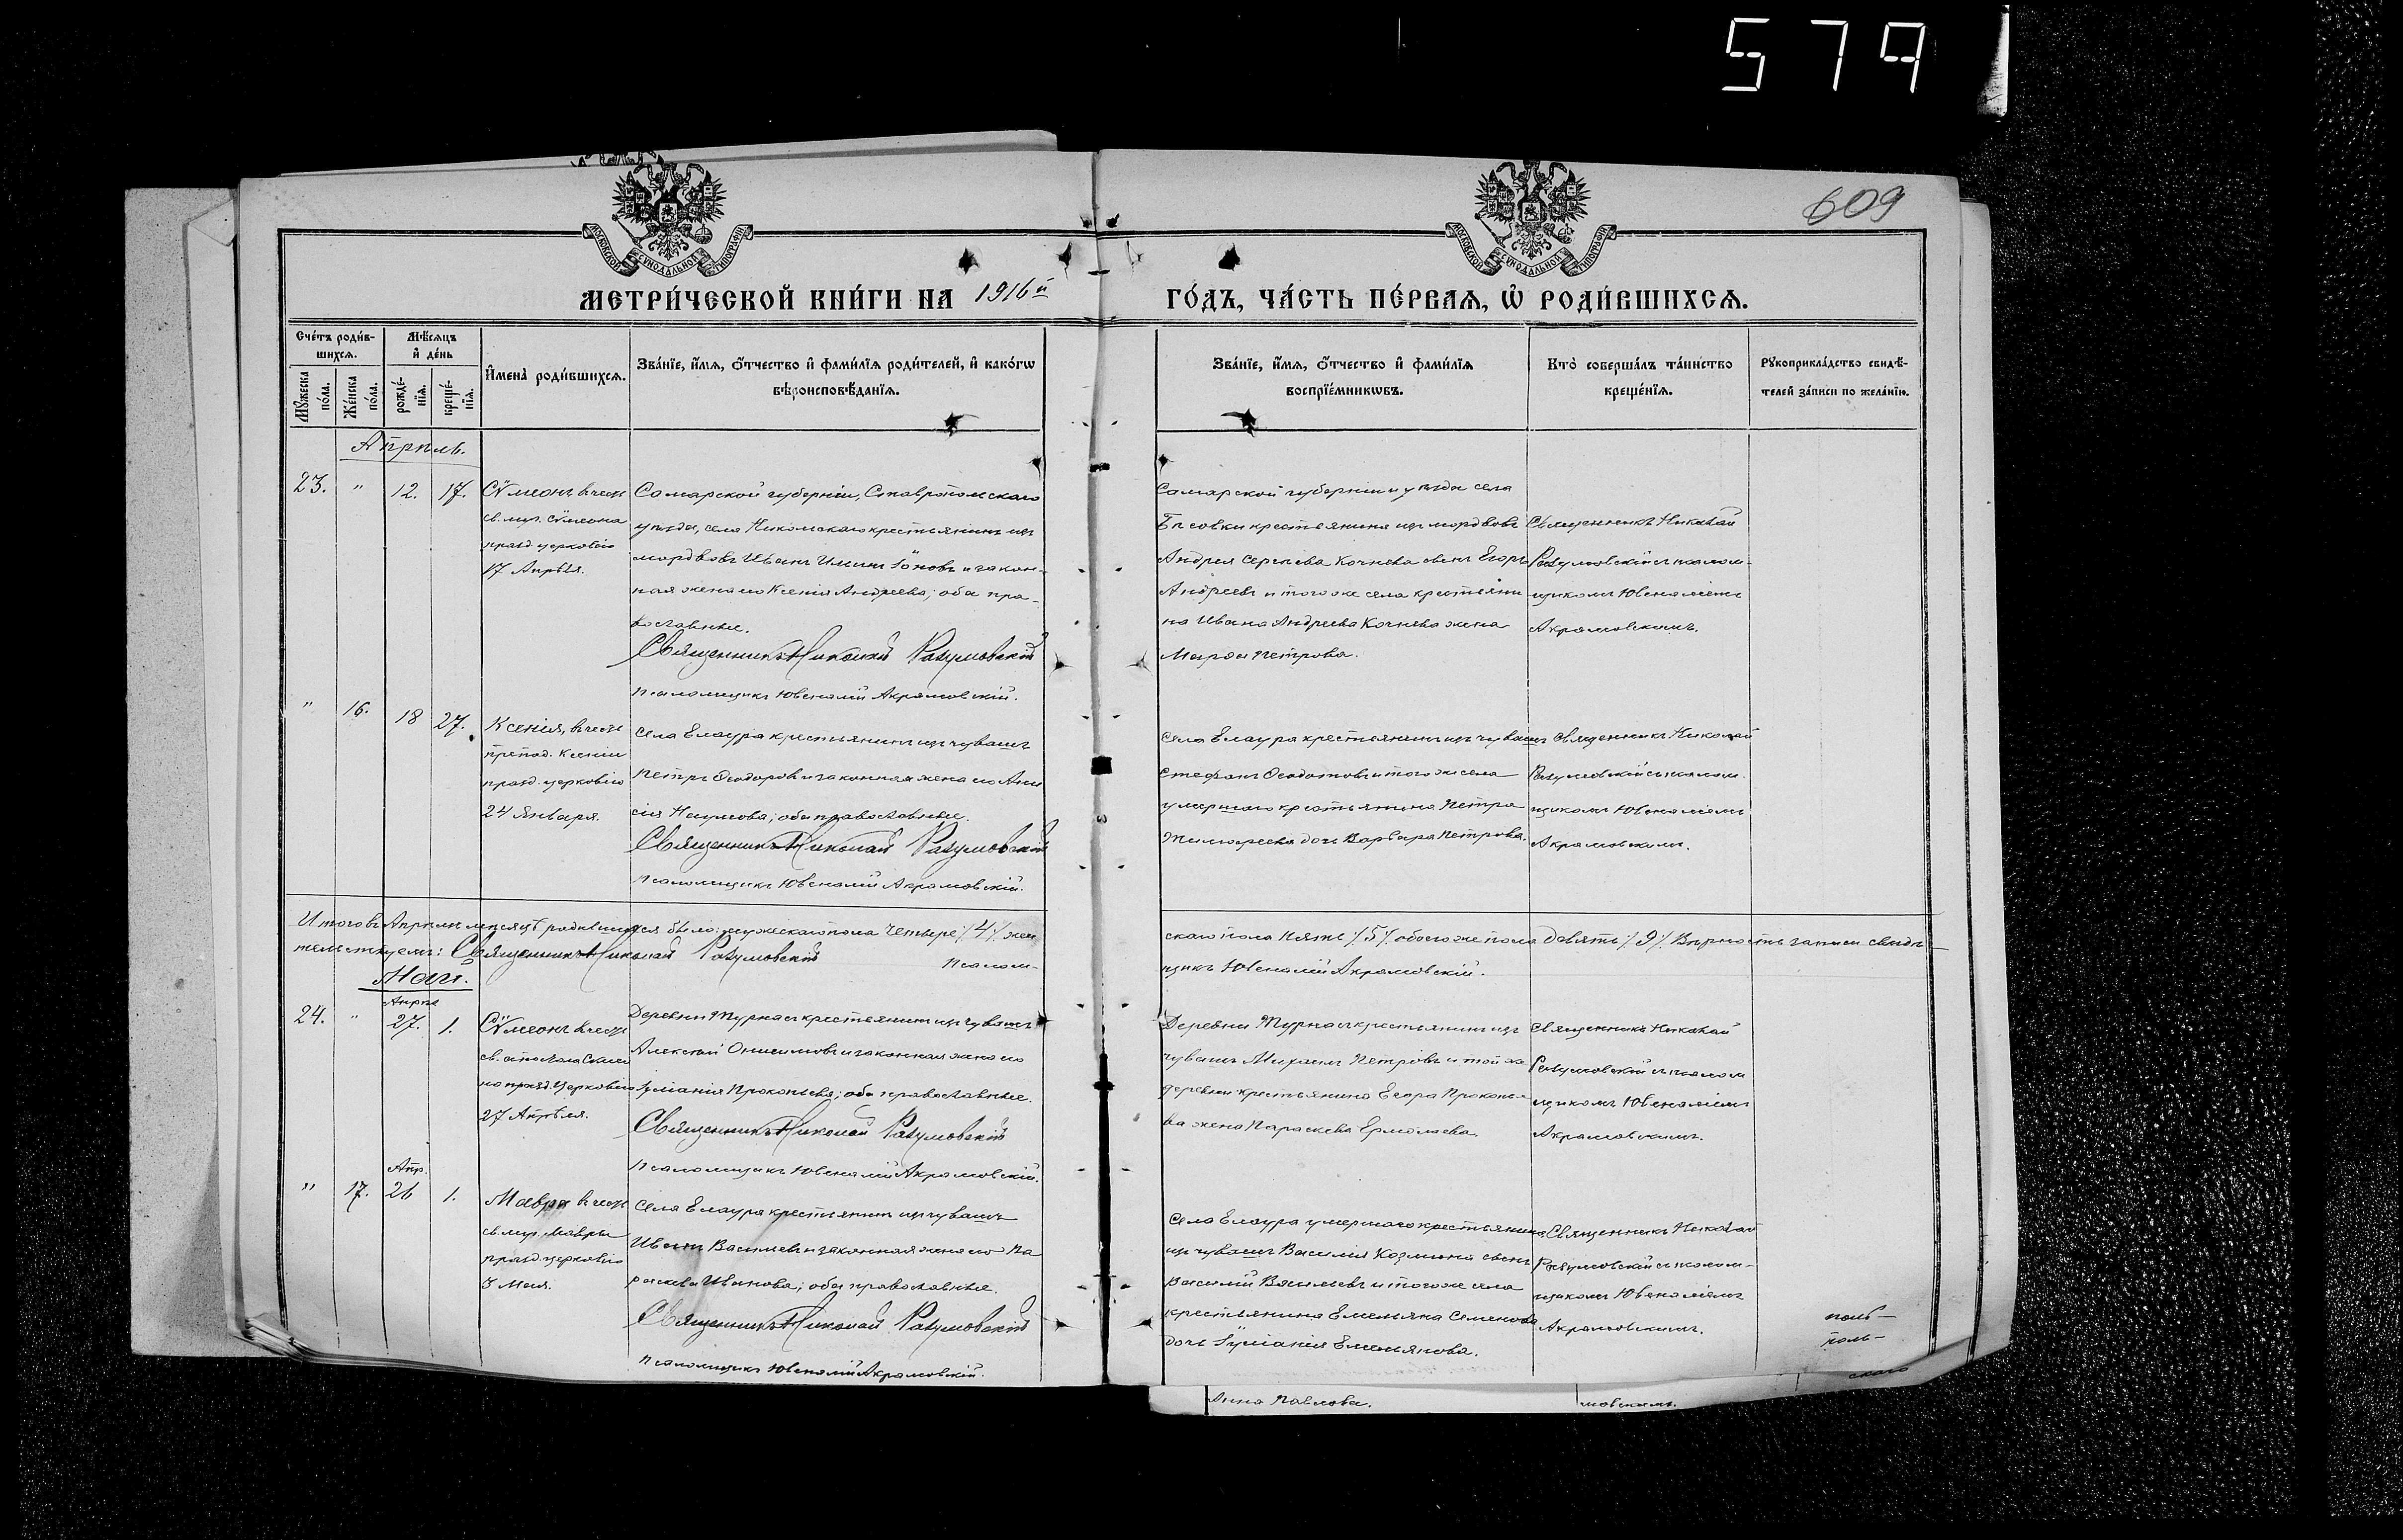 579
609
МОСКОВСКОЙ СѴНОДАЛЬНОЙ ТИПОГРАФІИ
МОСКОВСКОЙ СѴНОДАЛЬНОЙ ТИПОГРАФІИ
МЕТРИ́ЧЕСКОЙ КНИ́ГИ НА 1916й ГО́ДЪ, ЧА́СТЬ ПЕ́РВАѦ, Ѡ҆ РОДИ́ВШИХСѦ.
Сче́тъ роди́в-
шихсѧ.
Мꙋ́жеска
по́ла.
Же́нска
по́ла.
Мѣ́сѧцъ
и҆ де́нь
рожде́-
нїѧ.
креще́-
нїѧ.
И҆мена̀ роди́вшихсѧ.
Зва́нїе, и҆́мѧ, ѻ҆́тчество и҆ фами́лїѧ роди́телей, и҆ како́гѡ
вѣроисповѣ́данїѧ.
Зва́нїе, и҆́мѧ, ѻ҆́тчество и҆ фами́лїѧ
воспрїе́мникѡвъ.
Кто̀ соверша́лъ та́инство
креще́нїѧ.
Рꙋкоприкла́дство свидѣ́-
телей за́писи по жела́нїю.
Апрѣль.
23. " 12. 17.
Сѵмеонъ въ честь
св. муч. Сѵмеона
празд. церковію
17 Апрѣля.
Самарской губерніи, Ставропольскаго
уѣзда, села Никольскаго крестьянинъ изъ
мордвовъ Иванъ Ильинъ Іоновъ и закон-
ная жена его Ксенія Андреева; оба пра-
вославные.
Священникъ Николай Разумовскій
Псаломщикъ Ювеналій Акрамовскій.
Самарской губерніи и уѣзда села
крестьянина изъ мордвовъ
Андрея Сергѣева Кочнева сынъ Егоръ
Андреевъ и того же села крестьяни
на Ивана Андреева Кочнева жена
Марѳа Петрова.
Священникъ Николай
Разумовскій съ псалом-
щикомъ Ювеналіемъ
Акрамовскимъ.
" 16. 18 27.
Ксенія, въ честь
препод. Ксеніи
празд. церковію
24 Января.
Села Елаура крестьянинъ изъ чувашъ
Петръ Ѳеодоровъ и законная жена его Ани
сія Наумова; оба православные.
Священникъ Николай Разумовскій
Псаломщикъ Ювеналій Акрамовскій.
Села Елаура крестьянинъ изъ чувашъ
Стефанъ Ѳеодотовъ и того же села
умершаго крестьянина Петра
дочь Варвара Петрова.
Священникъ Николай
Разумовскій съ псалом-
щикомъ Ювеналіемъ
Акрамовскимъ.
Итого въ Апрѣлѣ мѣсяцѣ родившихся было: мужескаго пола четыре /4/, жен
скаго пола пять /5/, обоего же пола девять /9/. Вѣрность записи свидѣ-
тельствуемъ: Священникъ Николай Разумовскій
Псалом-
щикъ Ювеналій Акрамовскій.
Май.
Апрѣ
24. " 27. 1.
Сѵмеонъ въ честь
св. апостола Симео
на празд. церковію
27 Апрѣля.
Деревни крестьянинъ изъ чувашъ
Алексѣй Онисимовъ и законная жена его
Іуліанія Прокопьева; оба православные.
Священникъ Николай Разумовскій
Псаломщикъ Ювеналій Акрамовскій.
Деревни крестьянинъ изъ
чувашъ Михаилъ Петровъ и той же
деревни крестьянина Егора Прокопье
ва жена Параскева Ермолаева.
Священникъ Николай
Разумовскій съ псалом
щикомъ Ювеналіемъ
Акрамовскимъ.
Апр.
" 17. 26 1.
Мавра въ честь
св. муч. Мавры
празд. церковію
3 Мая.
Села Елаура крестьянинъ изъ чувашъ
Иванъ Васильевъ и законная жена его Па
раскева Иванова; оба православные.
Священникъ Николай Разумовскій
Псаломщикъ Ювеналій Акрамовскій.
Села Елаура умершаго крестьянина
изъ чувашъ Василія Козмина сынъ
Василій Васильевъ и того же села
крестьянина Емельяна Семенова
дочь Іуліанія Емельянова.
Священникъ Николай
Разумовскій съ псалом-
щикомъ Ювеналіемъ
Акрамовскимъ.
скаго
Анна Павлова.
мовскимъ.